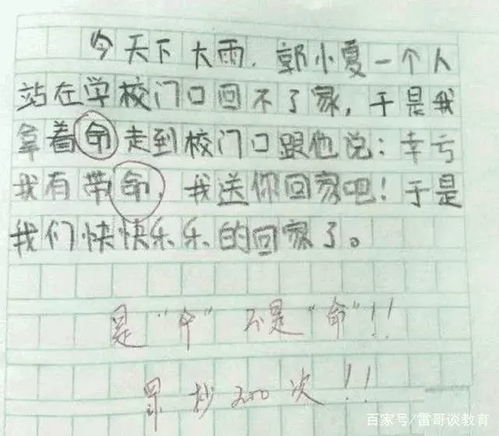 今天下大雨，郭小夏一个人
站在学校门口回不了家，于是我
拿着命走到校门口跟他说：幸亏
我有带命，我送你回家吧！于是
我们快快乐乐的回家了。
是“伞”不是“命”！！
罚抄200次！！
百家号/雷哥谈教育